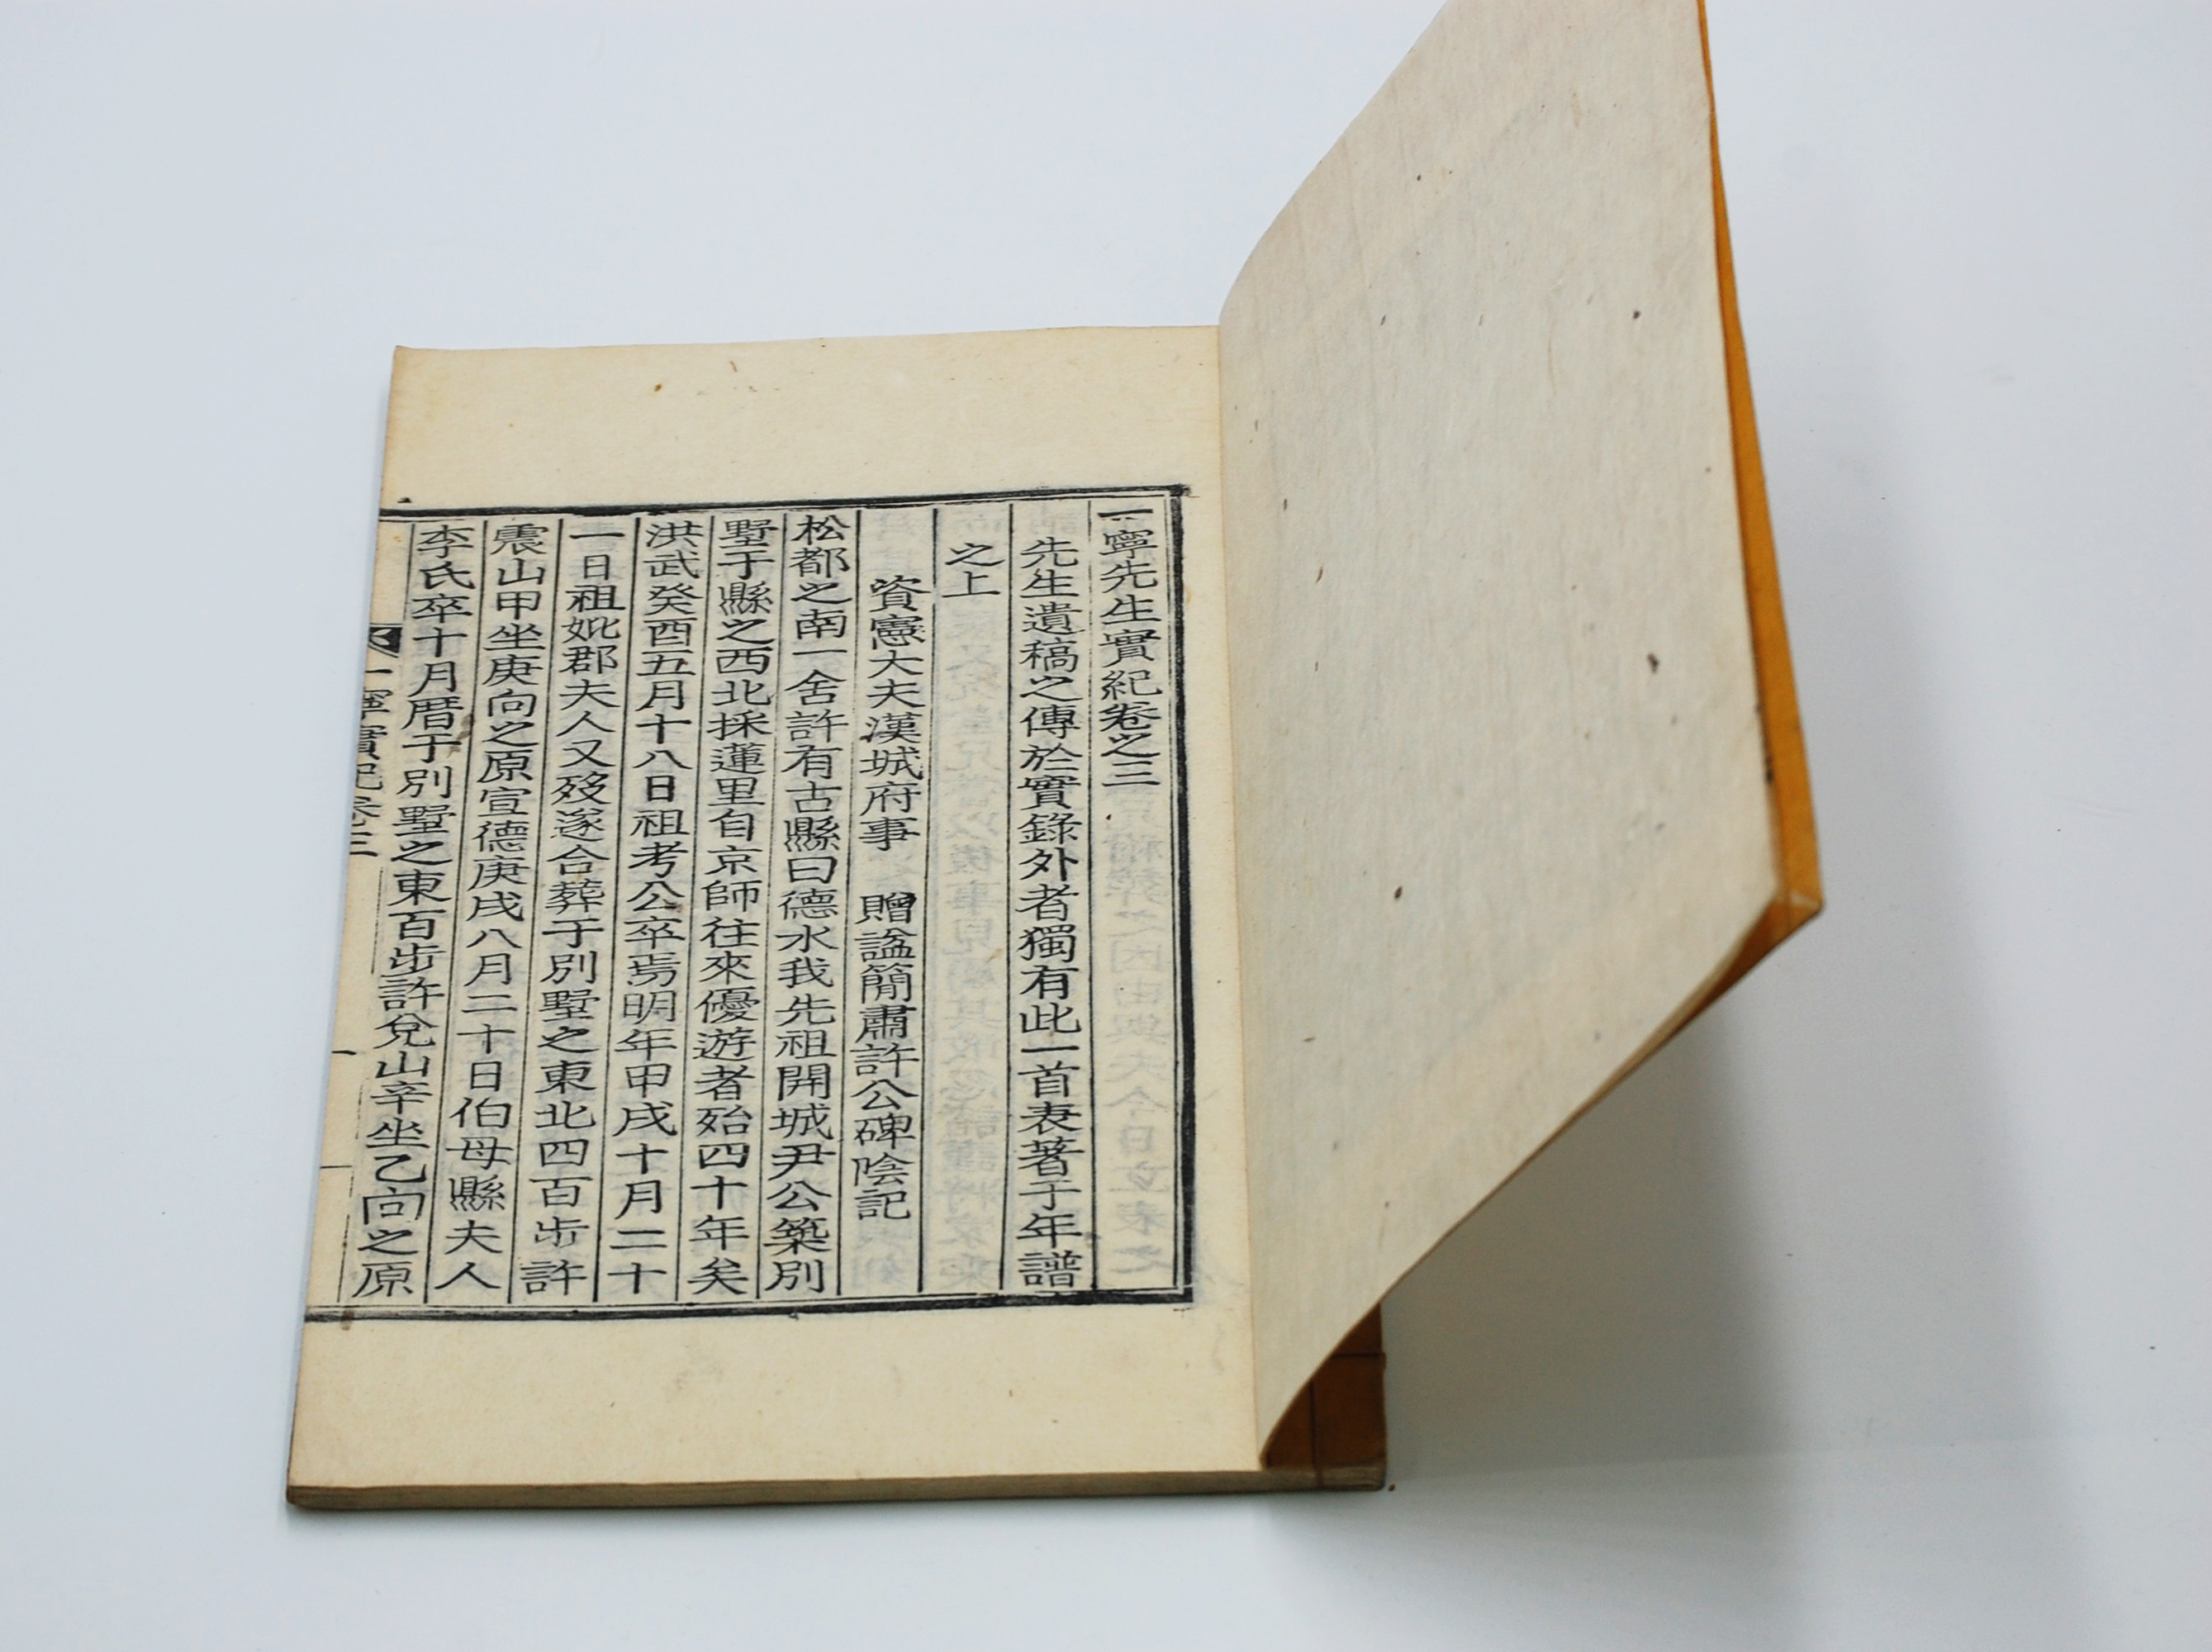 一寧先生實紀卷之三
先生遺稿之傳於實錄外者獨有此一首表著于年譜
之上
資憲大夫漢城府事 贈謚簡肅許公碑陰記
松都之南一舍許有古縣曰德水我先祖開城尹公築別
墅于縣之西北採蓮里自京師往來優游者殆四十年矣
洪武癸酉五月十八日祖考公卒焉明年甲戌十月二十
一日祖妣郡夫人又歿遂合葬于別墅之東北四百步許
震山甲坐庚向之原宣德庚戌八月二十日伯母縣夫人
李氏卒十月厝于別墅之東百步許兌山辛坐乙向之原
一寧實紀卷三
一